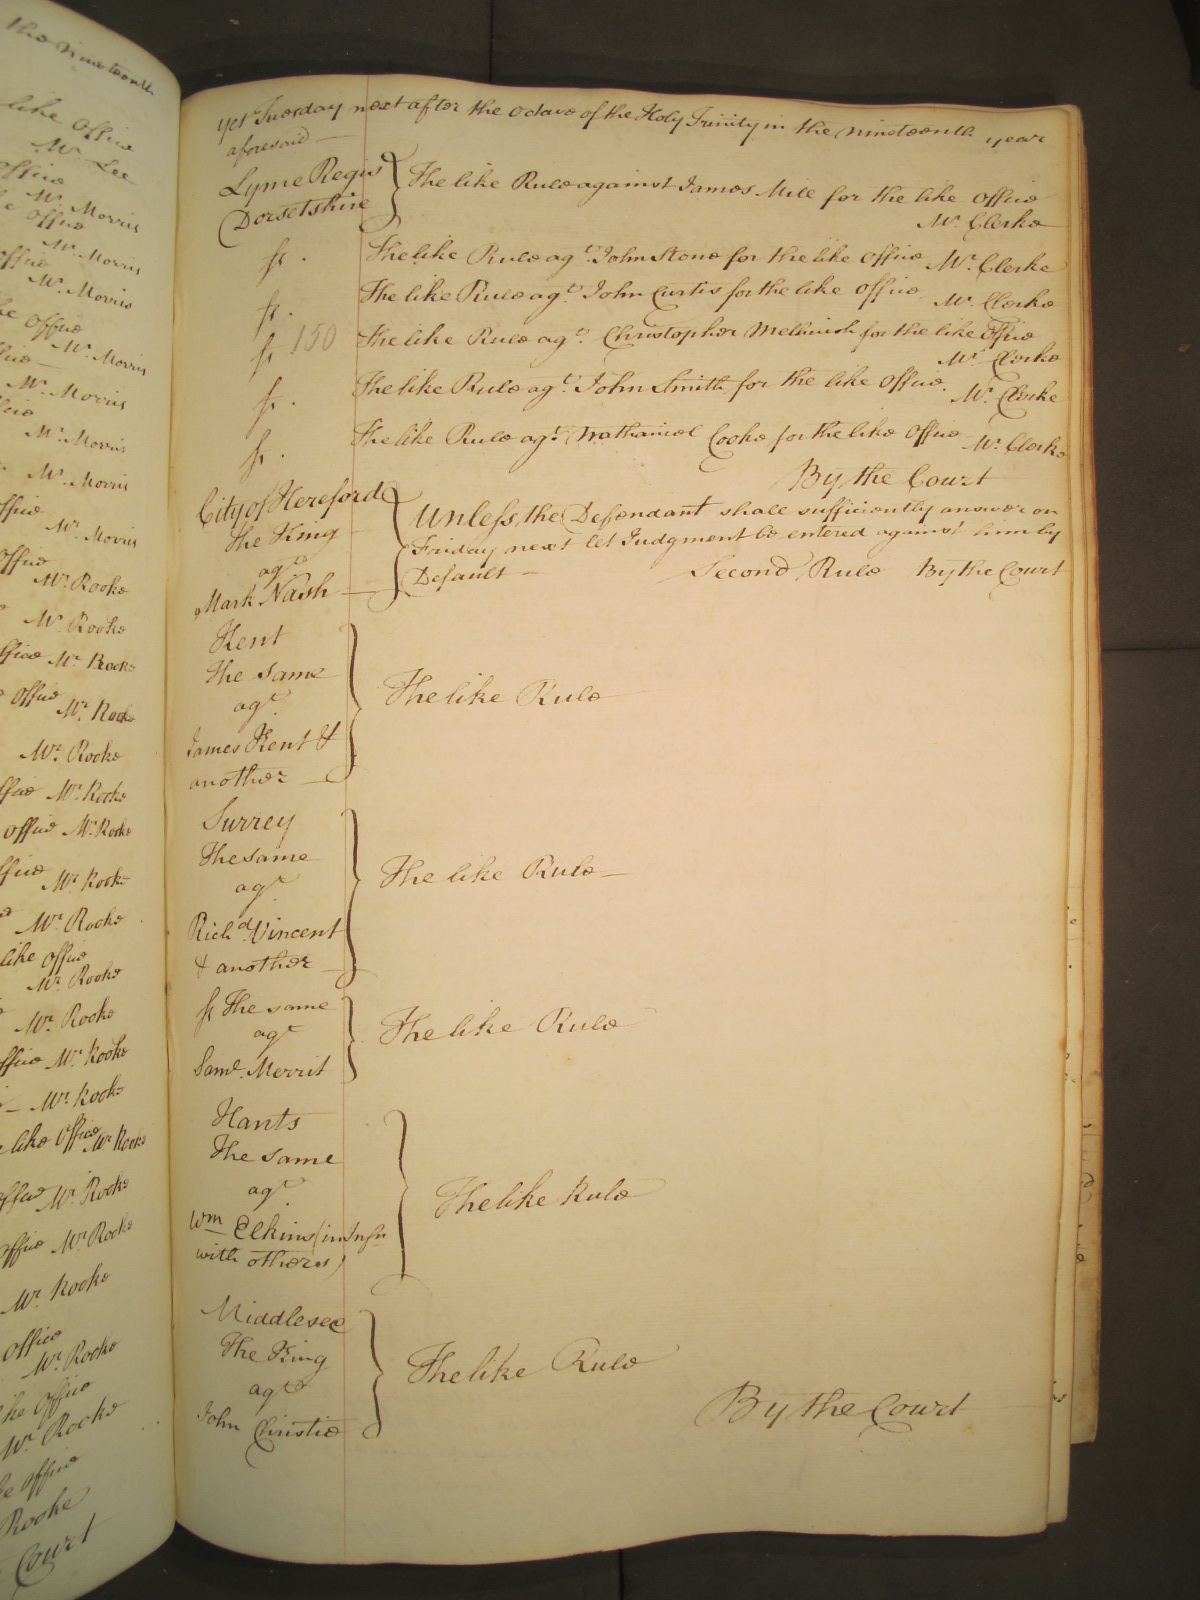 yet Tuesday next after the octave of the Holy Trinity in the nineteenth year
aforesaid
Lyme Regis
Dorsetshire
The like Rule against James Mill for the like Office
Mr. Clerke
The like Rule agt. John Stone for the like Office Mr. Clerke
The like Rule agt. John Curtis for the like Office Mr. Clerke
150 The like Rule agt. Christopher Melhuish for the like Office
Mr. Clerke
The like Rule agt. John Smith for the like Office. Mr. Clerke
The like Rule agt. Nathaniel Cooke for the like Office Mr. Clerke
By the Court
City of Hereford
The King
agt
Mark Nash
Unless the Defendant shall sufficiently answer on
Friday next let Judgment be entered against him by
Default Second Rule By the Court
Kent
The same
agt.
James Kent &
another
The like Rule
Surrey
The same
agt
Richd. Vincent
& another
The like Rule
The same
agt
Saml. Merrit
The like Rule
Hants
The same
agt.
Wm Elkins (in
with others)
The like Rule
Middlesex
The King
agt
John Christie
The like Rule
By the Court
the nineteenth
like Office
Mr. Lee
Office
Mr. Morris
Office
Mr. Morris
Mr. Morris
Office
Mr. Morris
Mr. Morris
Mr. Morris
Mr. Morris
Office
Mr. Morris
Office
Mr. Rooke
Mr. Rooke
Office Mr. Rooke
Office
Mr. Rooke
Mr. Rooke
Mr. Rooke
Office Mr. Rooke
Mr. Rooke
Mr. Rooke
like Office
Mr. Rooke
Mr. Rooke
Office Mr. Rooke
Mr. Rooke
like Office Mr. Rooke
Office Mr. Rooke
Office Mr. Rooke
Mr. Rooke
Office
Mr. Rooke
like Office
Mr. Rooke
Office
Rooke
Court